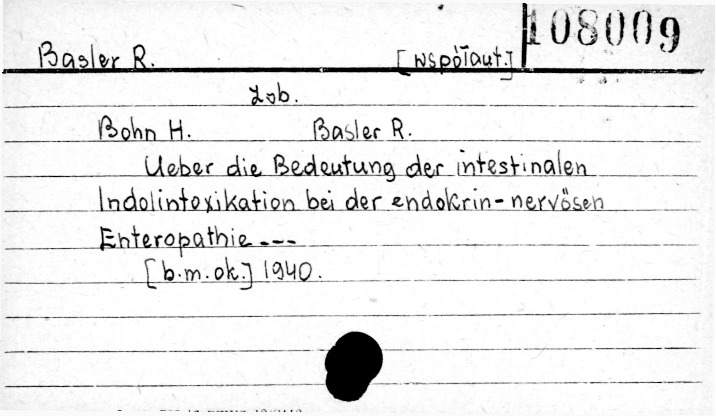 108009
Basler R. [współaut.]
Zob.
Bohn H. Basler R.
Ueber die Bedeutung der intestinalen
Indolintoxikation bei der endokrin-nervösen
Enteropathie ---
[b.m.ok.] 1940.